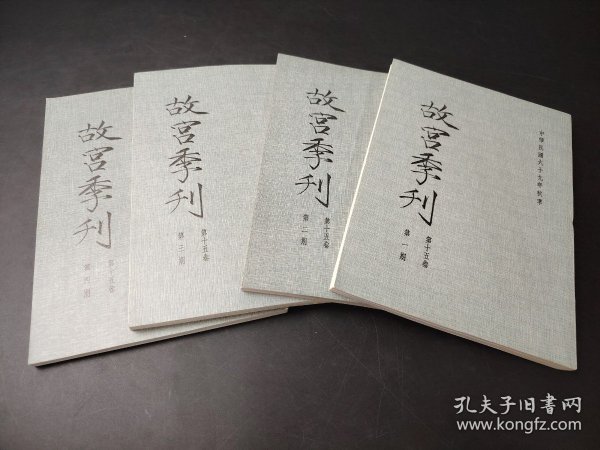 故宮季刊
第十五卷
第四期
故宮季刊
第十五卷
第三期
故宮季刊
第十五卷
第二期
故宮季刊
第十五卷
第一期
中華民國六十九年秋季
孔夫子旧书网
www.kongfz.com